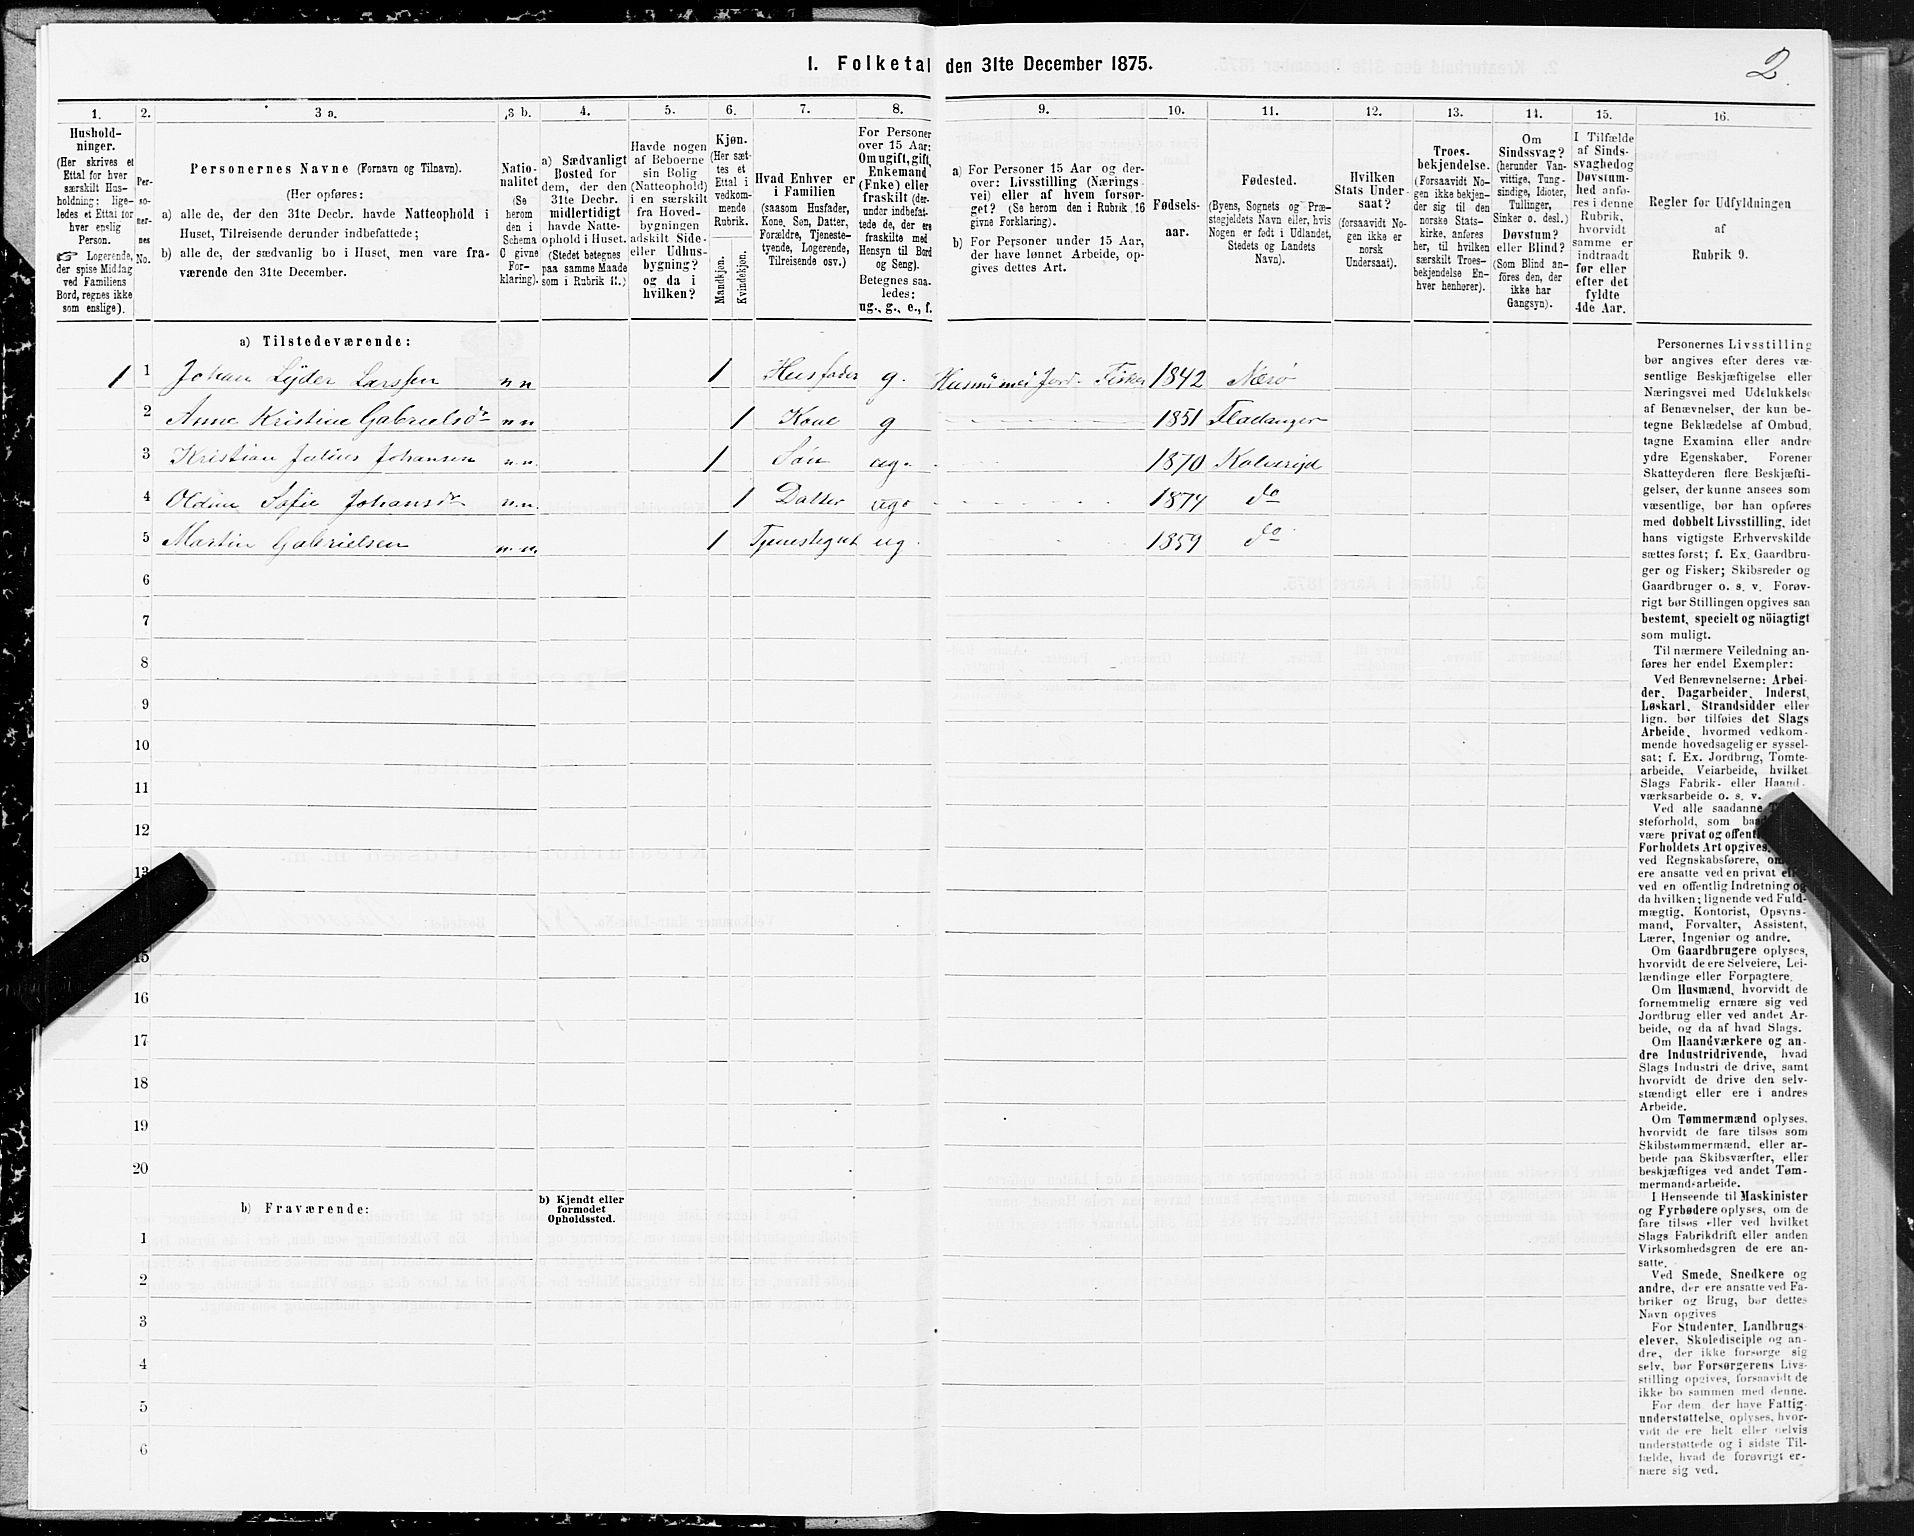 I. Folketal den 31te December 1875.
2.
1.
2.
3 a.
3 b.
4.
5.
6.
7.
8.
9.
10.
11.
12.
13.
14.
15.
16.
Hushold-
ninger.
(Her skrives et
Ettal for hver
særskilt Hus-
holdning; lige-
ledes et Ettal for
hver enslig
Person.
☞ Logerende,
der spise Middag
ved Familiens
Bord, regnes ikke
som enslige).
Per-
so-
ner-
nes
No.
Personernes Navne (Fornavn og Tilnavn).
(Her opføres:
a) alle de, der den 31te Decbr. havde Natteophold i
Huset, Tilreisende derunder indbefattede;
b) alle de, der sædvanlig bo i Huset, men vare fra-
værende den 31te December.
Natio-
nalitet
(Se
herom
den i
Schema
C givne
For-
klaring).
a) Sædvanligt
Bosted for
dem, der den
31te Decbr.
midlertidigt
havde Natte-
ophold i Huset.
(Stedet betegnes
paa samme Maade
som i Rubrik 11.)
Havde nogen
af Beboerne
sin Bolig
(Natteophold)
i en særskilt
fra Hoved-
bygningen
adskilt Side-
eller Udhus-
bygning?
og da i
hvilken?
Kjøn.
(Her sæt-
tes et
Ettal i
vedkom-
mende
Rubrik.
Mandkjøn.
Kvindekjøn.
Hvad Enhver er
i Familien
(saasom Husfader,
Kone, Søn, Datter,
Forældre, Tjeneste-
tyende, Logerende,
Tilreisende osv.)
For Personer
over 15 Aar:
Om ugift, gift,
Enkemand
(Enke) eller
fraskilt (der-
under indbefat-
tede de, der ere
fraskilte med
Hensyn til Bord
og Seng).
Betegnes saa-
ledes:
ug., g., e., f.
a) For Personer 15 Aar og der-
over: Livsstilling (Nærings-
vei) eller af hvem forsør-
get? (Se herom den i Rubrik 16
givne Forklaring).
b) For Personer under 15 Aar,
der have lønnet Arbeide, op-
gives dettes Art.
Fødsels-
aar.
Fødested.
(Byens, Sognets og Præ-
stegjeldets Navn eller, hvis
Nogen er født i Udlandet,
Stedets og Landets
Navn).
Hvilken
Stats Under-
saat?
(forsaavidt No-
gen ikke er
norsk
Undersaat).
Troes-
bekjendelse.
(Forsaavidt No-
gen ikke bekjen-
der sig til den
norske Stats-
kirke, anføres
her, til hvilken
særskilt Troes-
bekjendelse En-
hver henhører).
Om
Sindssvag?
(herunder Van-
vittige, Tung-
sindige, Idioter,
Tullinger,
Sinker o. desl.)
Døvstum?
eller Blind?
(Som Blind an-
føres den, der
ikke har
Gangsyn).
I Tilfælde
af Sinds-
svaghed og
Døvstum-
hed anfø-
res i denne
Rubrik,
hvorvidt
samme er
indtraadt
før eller
efter det
fyldte
4de Aar.
Regler for Udfyldningen
af
Rubrik 9.
a) Tilstedeværende:
1 1 Johan Lyder Larssen n n 1 Husfader g. Husm: med Jord. Fisker 1842 Nærø
2 Anne Kristine Gabrielsdr n n 1 Kone g 1851 Fladanger
3 Kristian Julius Johansen n.n. 1 Søn ug. 1870 Kolvereid
4 Oldine Sofie Johansdr n.n. 1 Datter ug. 1874 do
5 Martin Gabrielsen n.n. 1 Tjenestegut ug. 1859 do
6
7
8
9
10
11
12
13
15
16
17
18
19
20
b) Fraværende:
b) Kjendt eller
formodet
Opholdssted.
1
2
3
4
5
6
Personernes Livsstilling
bør angives efter deres væ-
sentlige Beskjæftigelse eller
Næringsvei med Udelukkelse
af Benævnelser, der kun be-
tegne Beklædelse af Ombud,
tagne Examina eller andre
ydre Egenskaber. Forener
Skatteyderen flere Beskjæfti-
gelser, der kunne ansees som
væsentlige, bør han opføres
med dobbelt Livsstilling, idet
hans vigtigste Erhvervskilde
sættes først; f. Ex. Gaardbru-
ger og Fisker; Skibsreder og
Gaardbruger o. s. v. Forøv-
rigt bør Stillingen opgives saa
bestemt, specielt og nöiagtigt
som muligt.
Til nærmere Veiledning an-
føres her endel Exempler:
Ved Benævnelserne: Arbei-
der, Dagarbeider, Inderst,
Løskarl, Strandsidder eller
lign. bør tilføies det Slags
Arbeide, hvormed vedkom-
mende hovedsagelig er syssel-
sat; f. Ex. Jordbrug, Tomte-
arbeide, Veiarbeide, hvilket
Slags Fabrik- eller Haand-
værksarbeide o. s. v.
Ved alle saadanne
steforhold, som
være privat og
Forholdets Art opgives,
ved Regnskabsførere,
ere ansatte ved en privat
ved en offentlig Indretning og
da hvilken; lignende ved Fuld-
mægtig, Kontorist, Opsyns-
mand, Forvalter, Assistent,
Lærer, Ingeniør og andre.
Om Gaardbrugere oplyses,
hvorvidt de ere Selveiere, Lei-
lændinge eller Forpagtere.
Om Husmænd, hvorvidt de
fornemmelig ernære sig ved
Jordbrug eller ved andet Ar-
beide, og da af hvad Slags.
Om Haandværkere og an-
dre Industridrivende, hvad
Slags Industri de drive, samt
hvorvidt de drive den selv-
stændigt eller ere i andres
Arbeide.
Om Tømmermænd oplyses,
hvorvidt de fare tilsøs som
Skibstømmermænd, eller ar-
beide paa Skibsværfter, eller
beskjæftiges ved andet Tøm-
mermand-arbeide.
I Henseende til Maskinister
og Fyrbødere oplyses, om de
fare tilsøs eller ved hvilket
Slags Fabrikdrift eller anden
Virksomhedsgren de ere an-
satte.
Ved Smede, Snedkere og
andre, der ere ansatte ved Fa-
briker og Brug, bør dettes
Navn opgives
For Studenter, Landbrugs-
elever, Skoledisciple og an-
dre, der ikke forsørge sig
selv, bør Forsørgerens Livs-
stilling opgives, forsaavidt de
ikke bo sammen med denne.
For dem, der have Fattig-
understøttelse, oplyses, hvor-
vidt de ere helt eller delvis
understøttede og i sidste Til-
fælde, hvad de forøvrigt er-
nære sig ved.